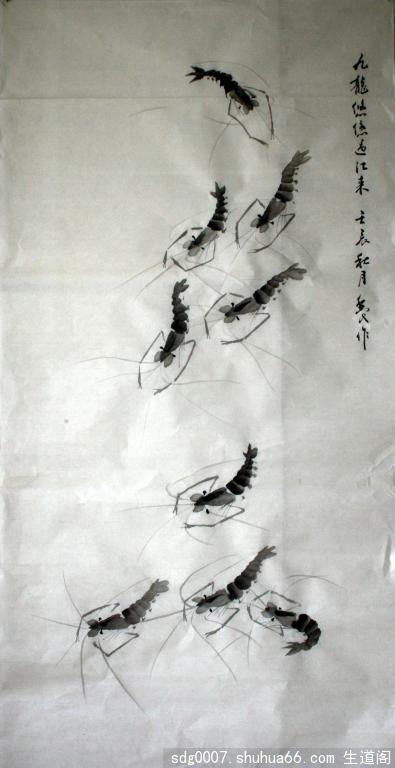 九龍悠悠過江来 壬辰秋月 作
sdg0007.shuhua66.com 生道阁